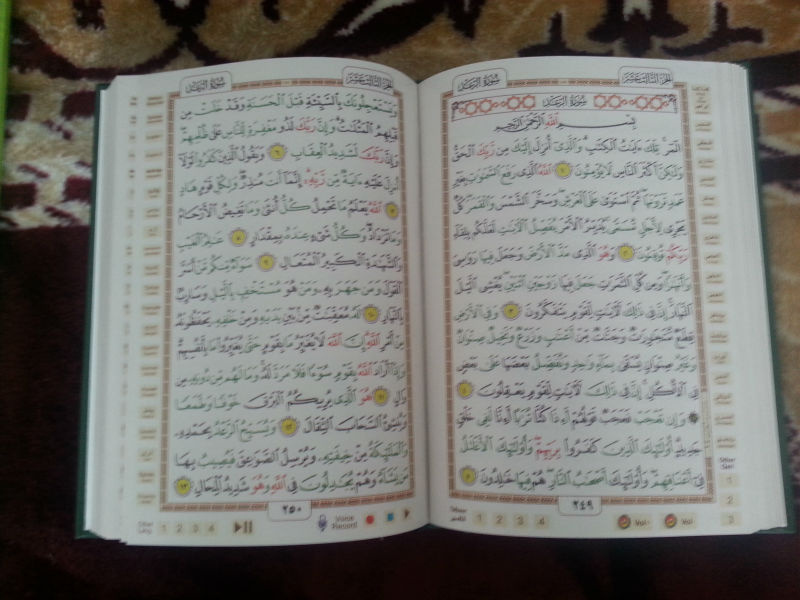 سُورَةُ الرَّعْدِ
الجزء الثالث عشر
سُورَةُ الرَّعْدِ
بِسْمِ اللَّهِ الرَّحْمَٰنِ الرَّحِيمِ
الٓمٓر تِلْكَ ءَايَٰتُ الْكِتَٰبِ وَالَّذِىٓ أُنزِلَ إِلَيْكَ مِن رَّبِّكَ الْحَقُّ
وَلَٰكِنَّ أَكْثَرَ النَّاسِ لَا يُؤْمِنُونَ ١ اللَّهُ الَّذِى رَفَعَ السَّمَٰوَٰتِ بِغَيْرِ
عَمَدٍ تَرَوْنَهَا ثُمَّ اسْتَوَىٰ عَلَى الْعَرْشِ وَسَخَّرَ الشَّمْسَ وَالْقَمَرَ كُلٌّ
يَجْرِى لِأَجَلٍ مُّسَمًّى يُدَبِّرُ الْأَمْرَ يُفَصِّلُ الْءَايَٰتِ لَعَلَّكُم بِلِقَآءِ
رَبِّكُمْ تُوقِنُونَ ٢ وَهُوَ الَّذِى مَدَّ الْأَرْضَ وَجَعَلَ فِيهَا رَوَٰسِىَ
وَأَنْهَٰرًا وَمِن كُلِّ الثَّمَرَٰتِ جَعَلَ فِيهَا زَوْجَيْنِ اثْنَيْنِ يُغْشِى الَّيْلَ
النَّهَارَ إِنَّ فِى ذَٰلِكَ لَءَايَٰتٍ لِّقَوْمٍ يَتَفَكَّرُونَ ٣ وَفِى الْأَرْضِ
قِطَعٌ مُّتَجَٰوِرَٰتٌ وَجَنَّٰتٌ مِّنْ أَعْنَٰبٍ وَزَرْعٌ وَنَخِيلٌ صِنْوَانٌ
وَغَيْرُ صِنْوَانٍ يُسْقَىٰ بِمَآءٍ وَٰحِدٍ وَنُفَضِّلُ بَعْضَهَا عَلَىٰ بَعْضٍ
فِى الْأُكُلِ إِنَّ فِى ذَٰلِكَ لَءَايَٰتٍ لِّقَوْمٍ يَعْقِلُونَ ٤
وَإِن تَعْجَبْ فَعَجَبٌ قَوْلُهُمْ أَءِذَا كُنَّا تُرَٰبًا أَءِنَّا لَفِى خَلْقٍ
جَدِيدٍ أُو۟لَٰٓئِكَ الَّذِينَ كَفَرُوا۟ بِرَبِّهِمْ وَأُو۟لَٰٓئِكَ الْأَغْلَٰلُ
فِىٓ أَعْنَاقِهِمْ وَأُو۟لَٰٓئِكَ أَصْحَٰبُ النَّارِ هُمْ فِيهَا خَٰلِدُونَ ٥
٢٤٩
1 2 3 4
Vol- Vol
1
2
3
سُورَةُ الرَّعْدِ
الجزء الثالث عشر
وَيَسْتَعْجِلُونَكَ بِالسَّيِّئَةِ قَبْلَ الْحَسَنَةِ وَقَدْ خَلَتْ مِن
قَبْلِهِمُ الْمَثُلَٰتُ وَإِنَّ رَبَّكَ لَذُو مَغْفِرَةٍ لِّلنَّاسِ عَلَىٰ ظُلْمِهِمْ
وَإِنَّ رَبَّكَ لَشَدِيدُ الْعِقَابِ ٦ وَيَقُولُ الَّذِينَ كَفَرُوا۟ لَوْلَآ
أُنزِلَ عَلَيْهِ ءَايَةٌ مِّن رَّبِّهِ إِنَّمَآ أَنتَ مُنذِرٌ وَلِكُلِّ قَوْمٍ هَادٍ
٧ اللَّهُ يَعْلَمُ مَا تَحْمِلُ كُلُّ أُنثَىٰ وَمَا تَغِيضُ الْأَرْحَامُ
وَمَا تَزْدَادُ وَكُلُّ شَىْءٍ عِندَهُ بِمِقْدَارٍ ٨ عَٰلِمُ الْغَيْبِ
وَالشَّهَٰدَةِ الْكَبِيرُ الْمُتَعَالِ ٩ سَوَآءٌ مِّنكُم مَّنْ أَسَرَّ
الْقَوْلَ وَمَن جَهَرَ بِهِ وَمَنْ هُوَ مُسْتَخْفٍ بِالَّيْلِ وَسَارِبٌ
بِالنَّهَارِ ١٠ لَهُ مُعَقِّبَٰتٌ مِّنۢ بَيْنِ يَدَيْهِ وَمِنْ خَلْفِهِ يَحْفَظُونَهُ
مِنْ أَمْرِ اللَّهِ إِنَّ اللَّهَ لَا يُغَيِّرُ مَا بِقَوْمٍ حَتَّىٰ يُغَيِّرُوا۟ مَا بِأَنفُسِهِمْ
وَإِذَآ أَرَادَ اللَّهُ بِقَوْمٍ سُوٓءًا فَلَا مَرَدَّ لَهُ وَمَا لَهُم مِّن دُونِهِ مِن
وَالٍ ١١ هُوَ الَّذِى يُرِيكُمُ الْبَرْقَ خَوْفًا وَطَمَعًا
وَيُنشِئُ السَّحَابَ الثِّقَالَ ١٢ وَيُسَبِّحُ الرَّعْدُ بِحَمْدِهِ
وَالْمَلَٰٓئِكَةُ مِنْ خِيفَتِهِ وَيُرْسِلُ الصَّوَٰعِقَ فَيُصِيبُ بِهَا
مَن يَشَآءُ وَهُمْ يُجَٰدِلُونَ فِى اللَّهِ وَهُوَ شَدِيدُ الْمِحَالِ ١٣
٢٥٠
1 2 3 4
Voice Record